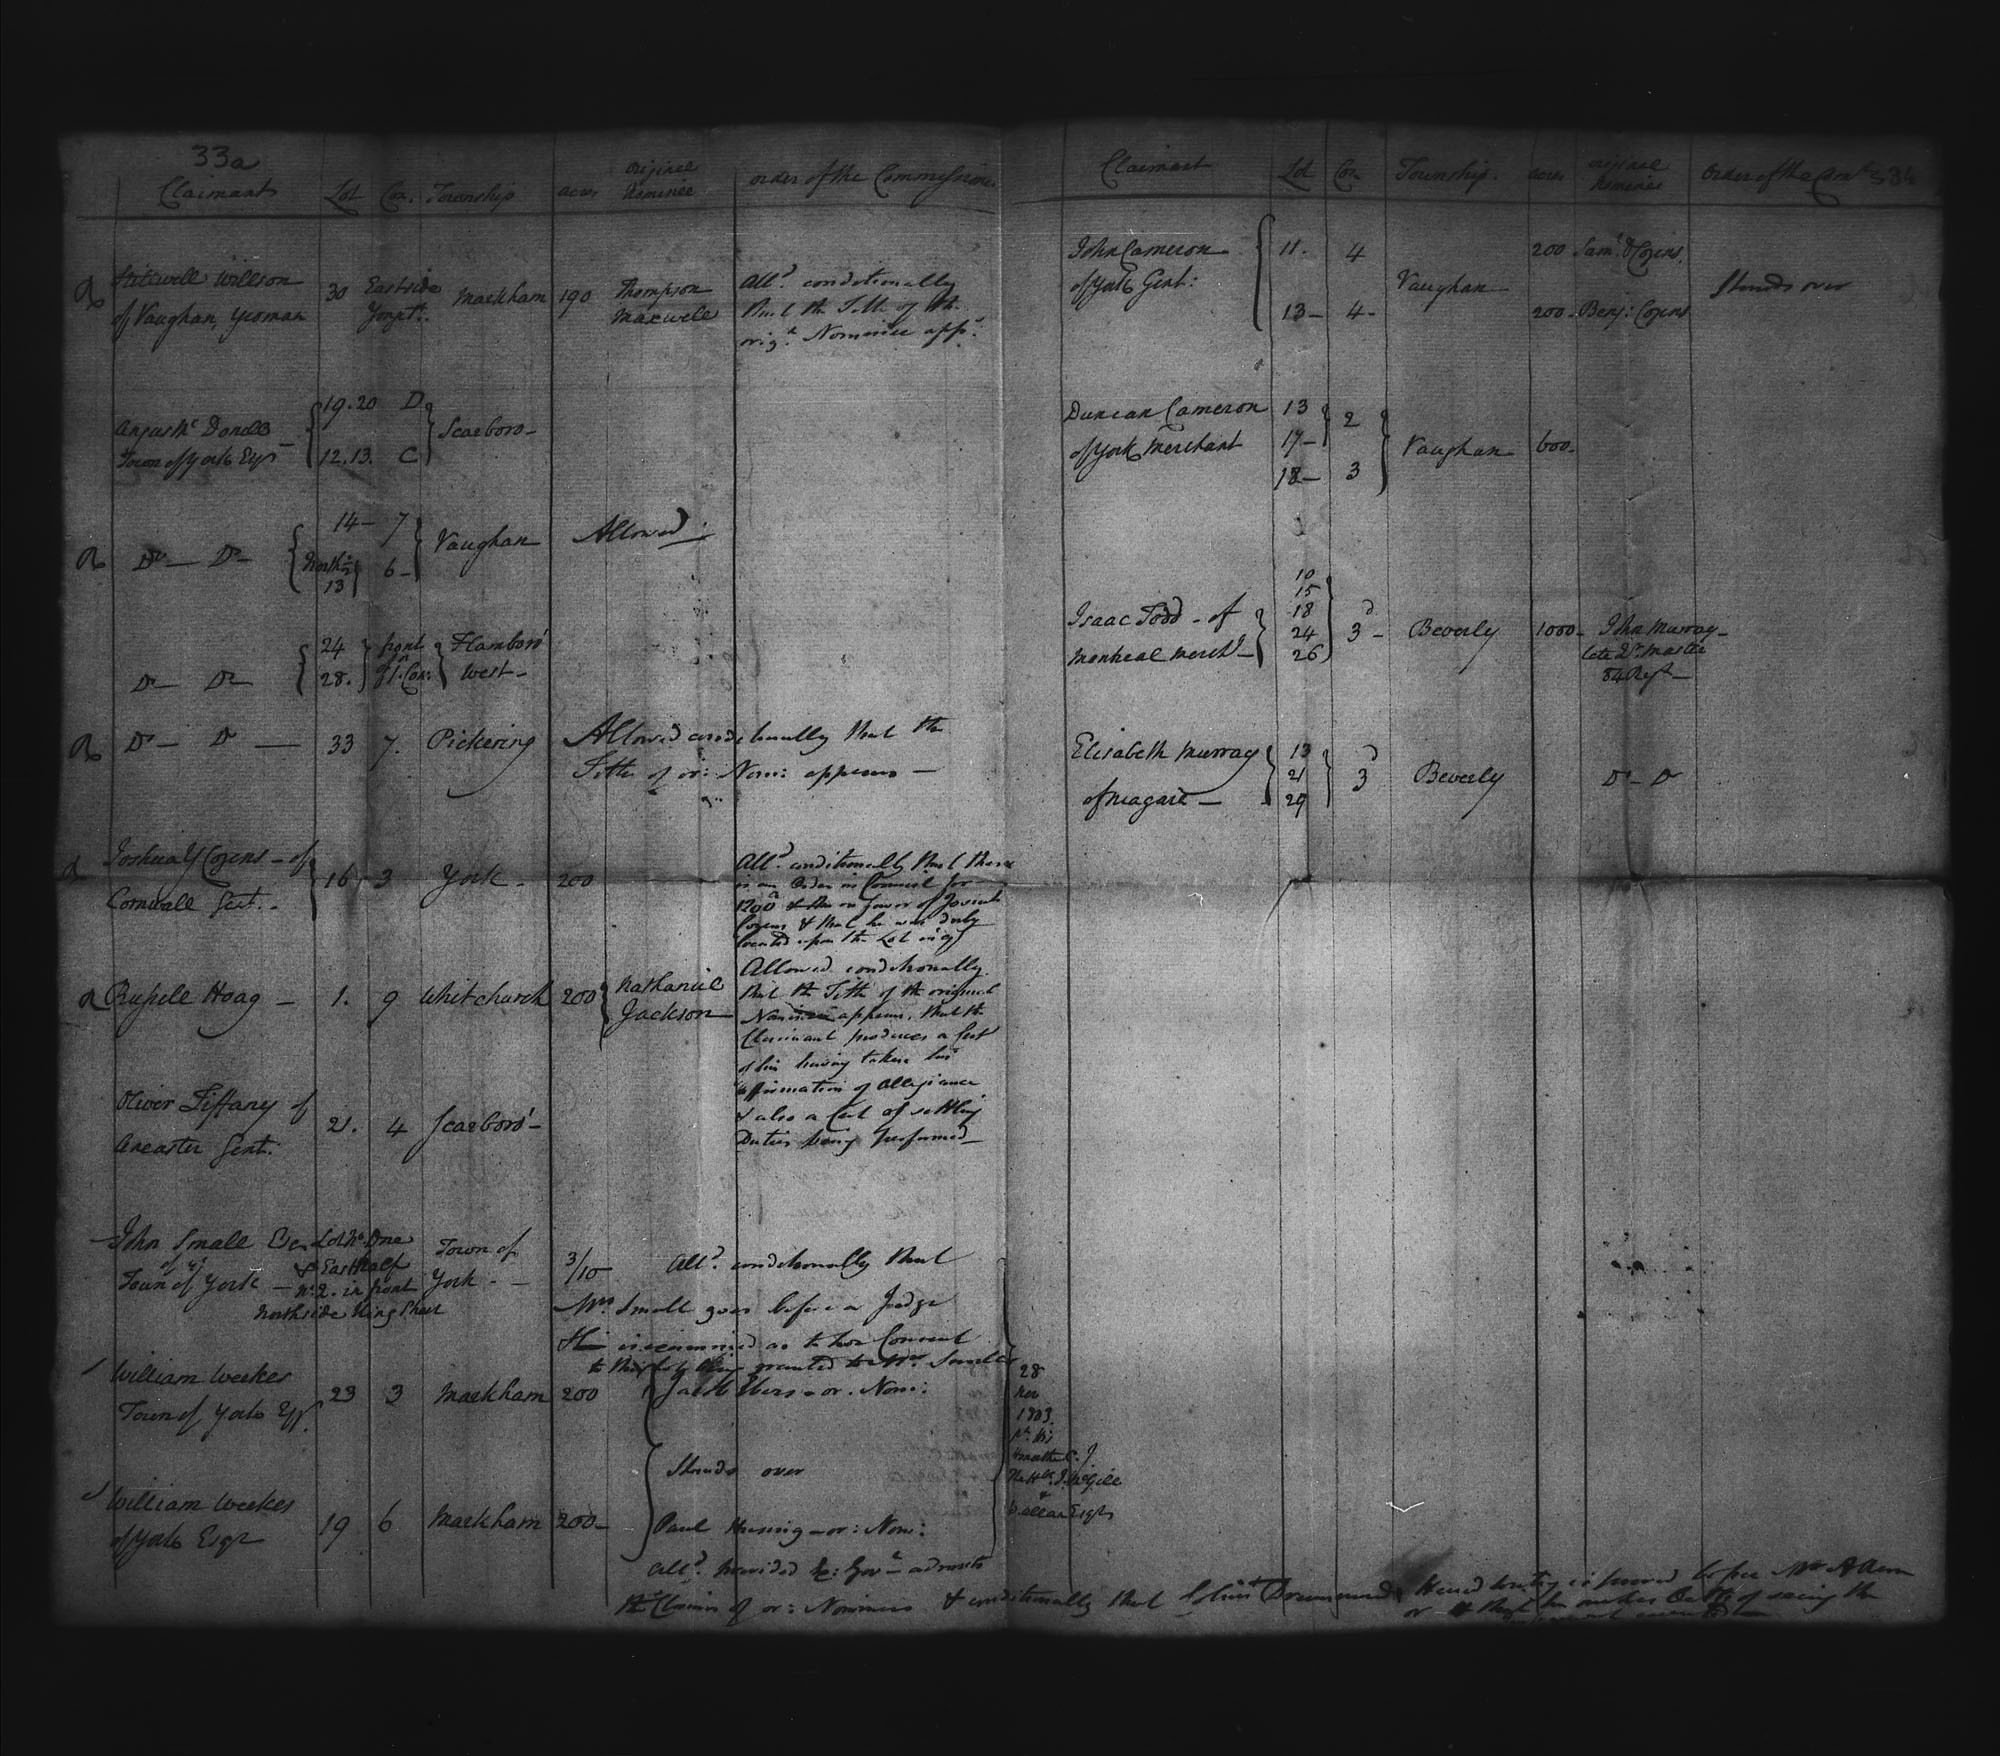 33a
Claimants Lot Con. Township acres original Nominee order of the Commissioners
Stilwell Willson
of Vaughan, yeoman
30 East side
Yong St.
Markham 190 Thompson
Maxwell
All.d conditionally
that the Title of the
orig.l Nominee app.s
Angus Mc Donell
Town of York Esqr
19.20 D
12.13. C
Scarboro
Do — Do
14 — 7
North ½
13
6
Vaughan
Allowed
Do — Do
24
28.
front
of 1. Con:
Flamboro'
West
Do — Do — 33 7. Pickering
Allowed conditionally that the
Title of or: Nom: appears —
Joshua Y Cozens — of
Cornwall Gent.
16 3 York 200
All.d conditionally that there
is an Order in Council for
1200 a in favor of Joshua
Cozens & that he was duly
located upon the Lot
Russell Hoag — 1. 9 Whitchurch 200 Nathaniel
Jackson
Allowed conditionally
that the Title of the original
Nominee appears, that the
Claimant produces a Cert
of his having taken his
affirmation of Allegiance
& also a Cert of settling
Duties being performed —
Oliver Tiffany of
Ancaster Gent:
21. 4 Scarboro' —
John Small Esqr
of ye
Town of York —
Lot No. One
& East half
No. 2. in front
North side King Street
Town of
York. —
3/10
All.d conditionally that
Mrs Small goes before a Judge
& is examined as to her Consent
to this Lot being granted to Mr Small
William Weekes
Town of York Esqr.
23 3 Markham 200
Jacob Ebers — or. Nom:
Stands over
28
Nov
1803.
the C. J.
The Hble. J. McGill
&
W. Allan Esqrs
William Weekes
of York Esqr
19 6 Markham 200 —
Paul Husing — or: Nom:
All.d provided
the Claims of or: Nominees & conditionally that Drummonds Hand writing is proved before Mr Allan
or that he makes Oath of seeing the
Claimant Lot Con. Township. acres original Nominee Order of the Comrs 34
John Cameron
of York Gent:
11. 4
13 — 4 —
Vaughan
200 Saml. D Cozens.
200 — Benj: Cozens
Stands over
Duncan Cameron
of York Merchant
13
17 —
2
18 — 3
Vaughan 600 —
Isaac Todd — of
Montreal Mercht —
10
15
18
24
26
3d — Beverly 1000 — John Murray —
late Qr. Master
84 Regt —
Elisabeth Murray
of Niagara —
13
21
29
3d Beverly Do — Do